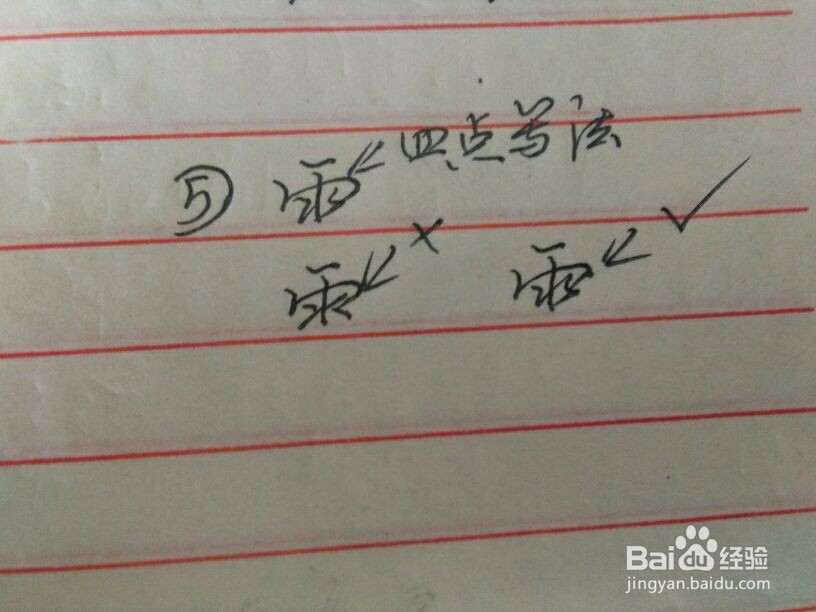 ⑤ 雨 ← 四点写法
雨 ← × 雨 ← ✓
Baidu 经验
jingyan.baidu.com